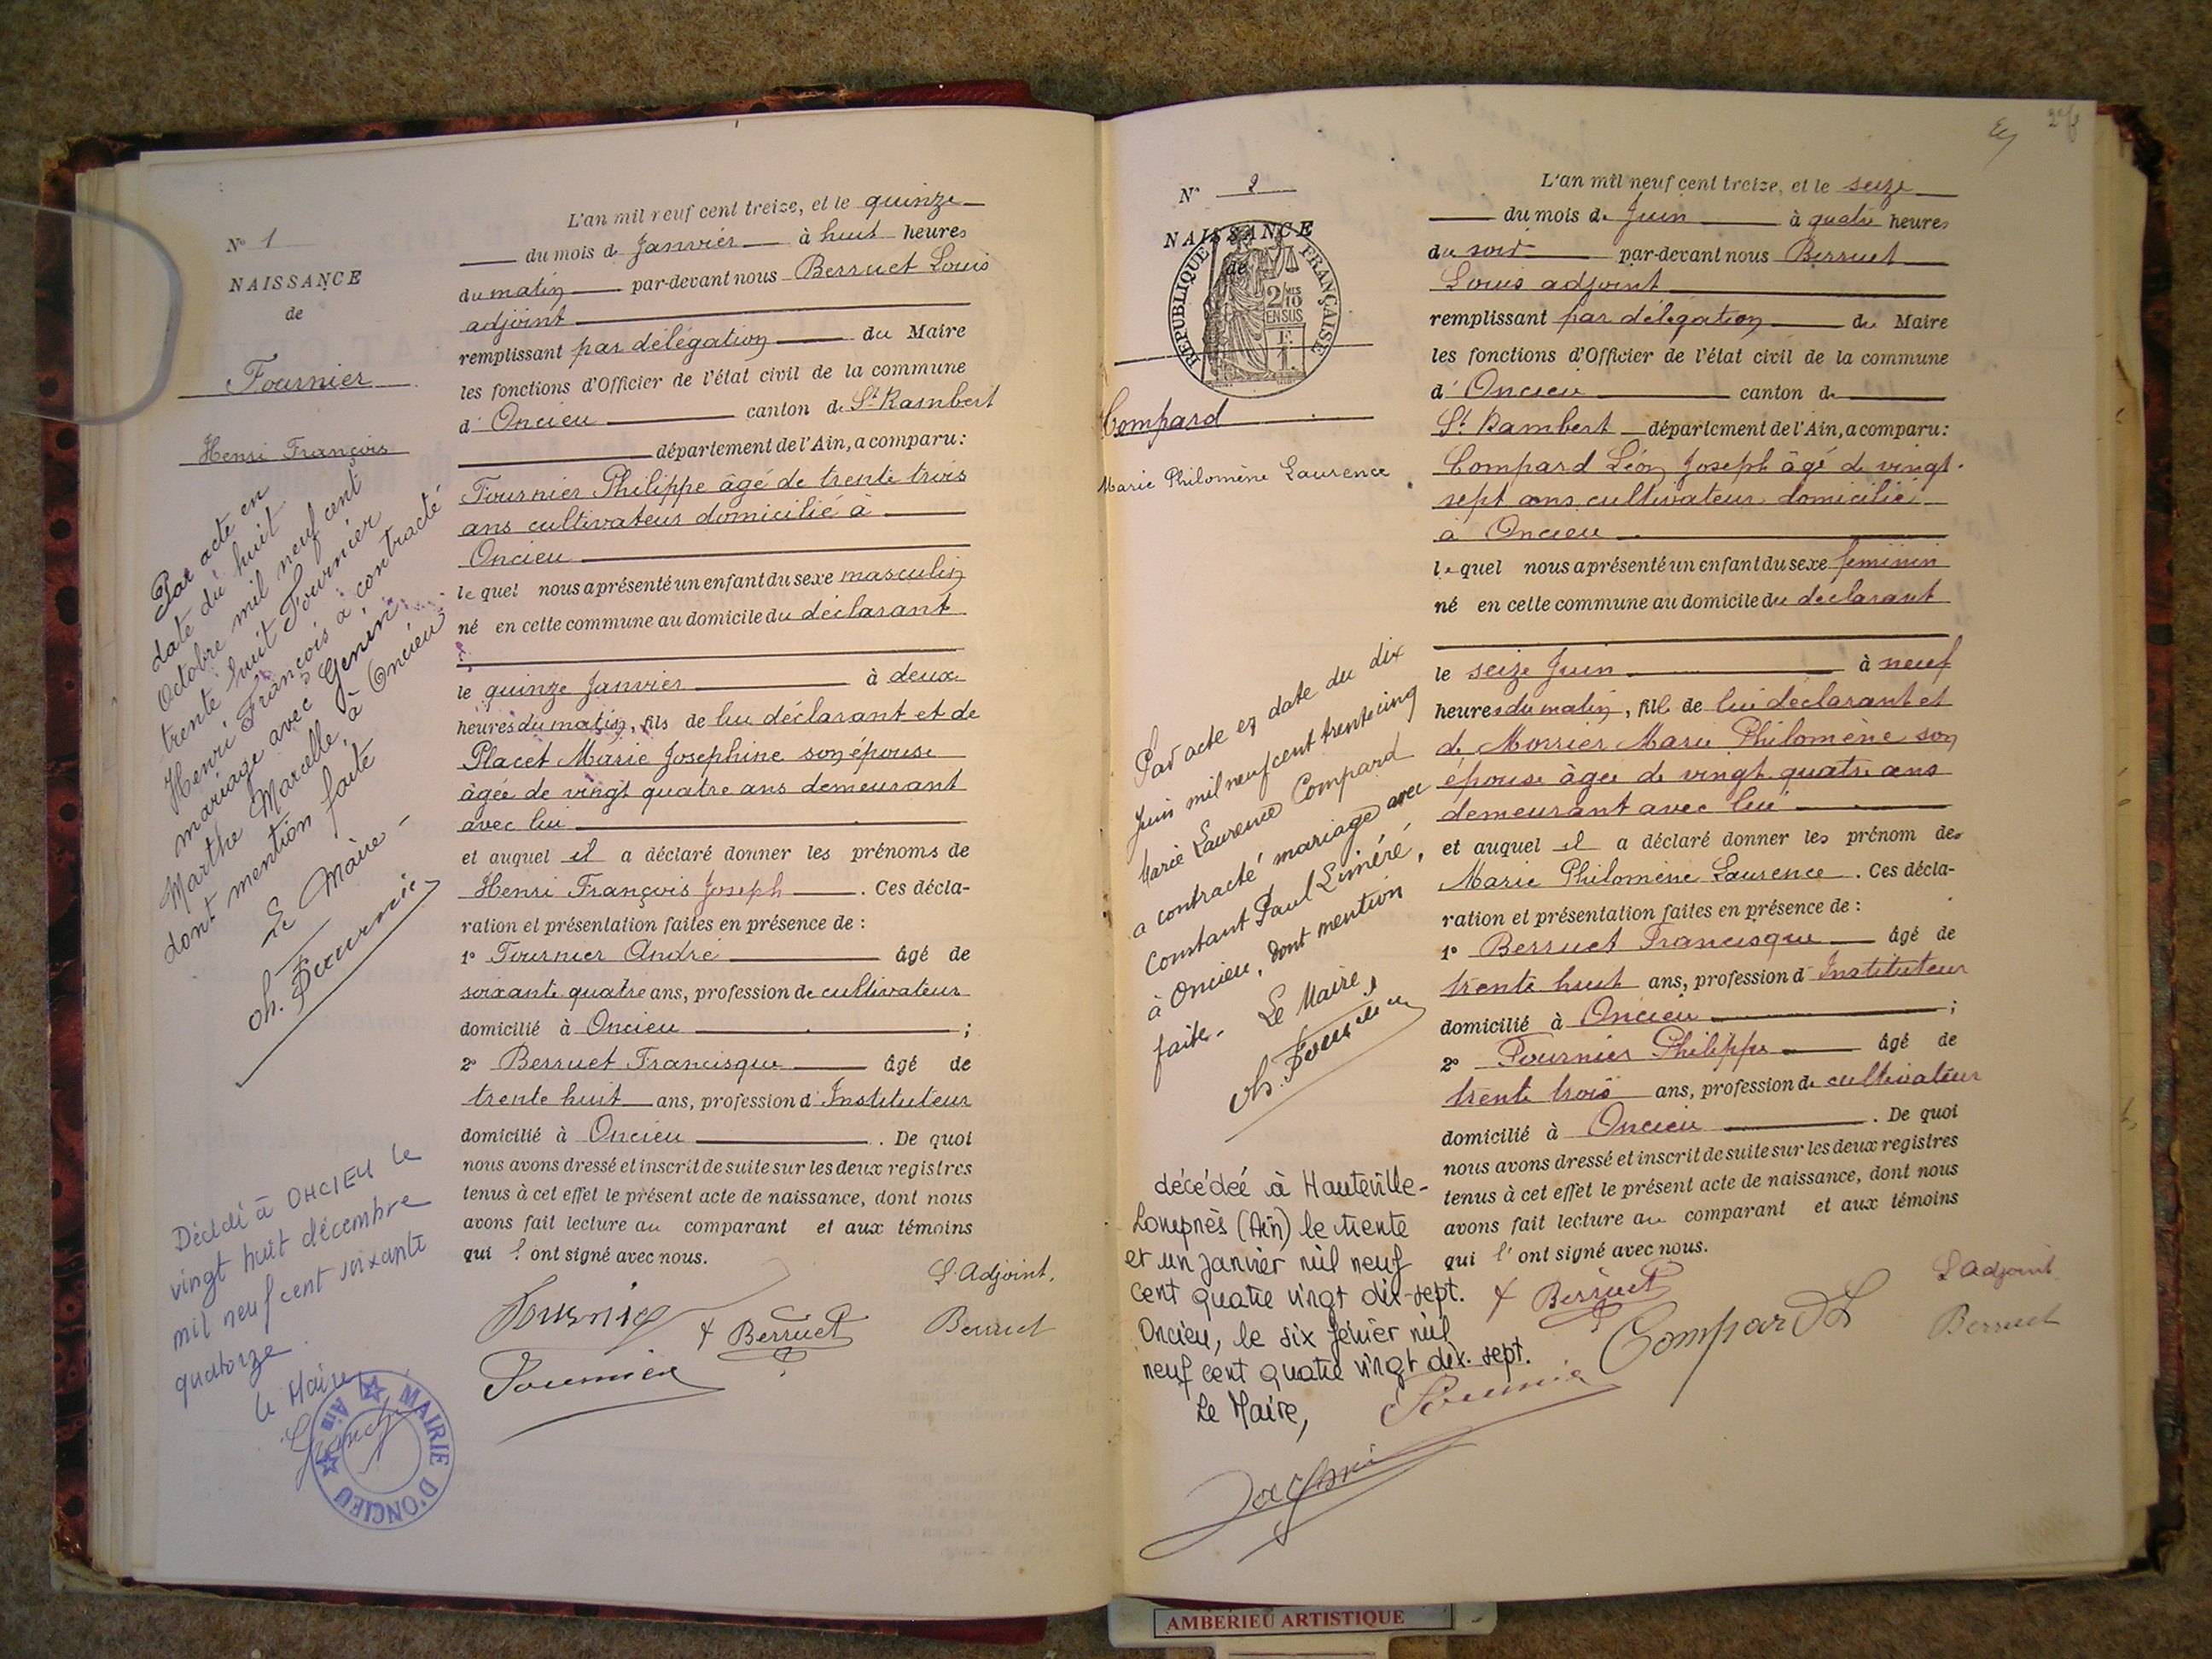 N° 1
NAISSANCE
de
Fournier
Henri François
Par acte en
date du huit
Octobre mil neuf cent
trente huit Fournier
Henri François a contracté
mariage avec Genin
Marthe Marcelle, à Oncieu
dont mention faite
Le Maire
Décédé à ONCIEU le
vingt huit décembre
mil neuf cent soixante
quatorze
le Maire
MAIRIE D'ONCIEU
Ain
L'an mil neuf cent treize, et le quinze
du mois de Janvier à huit heures
du matin par-devant nous Berruet Louis
adjoint
remplissant par délégation du Maire
les fonctions d'Officier de l'état civil de la commune
d'Oncieu canton de St Rambert
département de l'Ain, a comparu:
Fournier Philippe âgé de trente trois
ans cultivateur domicilié à
Oncieu
lequel nous a présenté un enfant du sexe masculin
né en cette commune au domicile du déclarant
le quinze Janvier à deux
heures du matin, fils de lui déclarant et de
Placet Marie Josephine son épouse
âgée de vingt quatre ans demeurant
avec lui
et auquel il a déclaré donner les prénoms de
Henri François Joseph. Ces décla-
ration et présentation faites en présence de :
1° Fournier André âgé de
soixante quatre ans, profession de cultivateur
domicilié à Oncieu ;
2° Berruet Francisque âgé de
trente huit ans, profession d'Instituteur
domicilié à Oncieu. De quoi
nous avons dressé et inscrit de suite sur les deux registres
tenus à cet effet le présent acte de naissance, dont nous
avons fait lecture au comparant et aux témoins
qui l'ont signé avec nous.
L'Adjoint,
Fournier
Berruet
Berruet
Fournier
N° 2
NAISSANCE
de
RÉPUBLIQUE FRANÇAISE
2/10
EN SUS
Compard
Marie Philomène Laurence
Par acte en date du dix
Juin mil neuf cent trente cinq
Marie Laurence Compard
a contracté mariage avec
Constant Paul Liméré,
à Oncieu, dont mention
faite. Le Maire,
décédée à Hauteville-
Lompnès (Ain) le trente
et un janvier mil neuf
cent quatre vingt dix-sept.
Oncieu, le six février mil
neuf cent quatre vingt dix-sept.
Le Maire,
L'an mil neuf cent treize, et le seize
du mois de Juin à quatre heures
du soir par-devant nous Berruet
Louis adjoint
remplissant par délégation du Maire
les fonctions d'Officier de l'état civil de la commune
d'Oncieu canton de
St Rambert département de l'Ain, a comparu:
Compard Léon Joseph âgé de vingt-
sept ans cultivateur domicilié
à Oncieu
lequel nous a présenté un enfant du sexe féminin
né en cette commune au domicile du déclarant
le seize Juin à neuf
heures du matin, fille de lui déclarant et
de Morrier Marie Philomène son
épouse âgée de vingt quatre ans
demeurant avec lui
et auquel il a déclaré donner les prénom de
Marie Philomène Laurence. Ces décla-
ration et présentation faites en présence de :
1° Berruet Francisque âgé de
trente huit ans, profession d'Instituteur
domicilié à Oncieu ;
2° Fournier Philippe âgé de
trente trois ans, profession de cultivateur
domicilié à Oncieu. De quoi
nous avons dressé et inscrit de suite sur les deux registres
tenus à cet effet le présent acte de naissance, dont nous
avons fait lecture au comparant et aux témoins
qui l'ont signé avec nous.
L'adjoint
Berruet
Compard L
Berruet
Fournier
AMBERIEU ARTISTIQUE